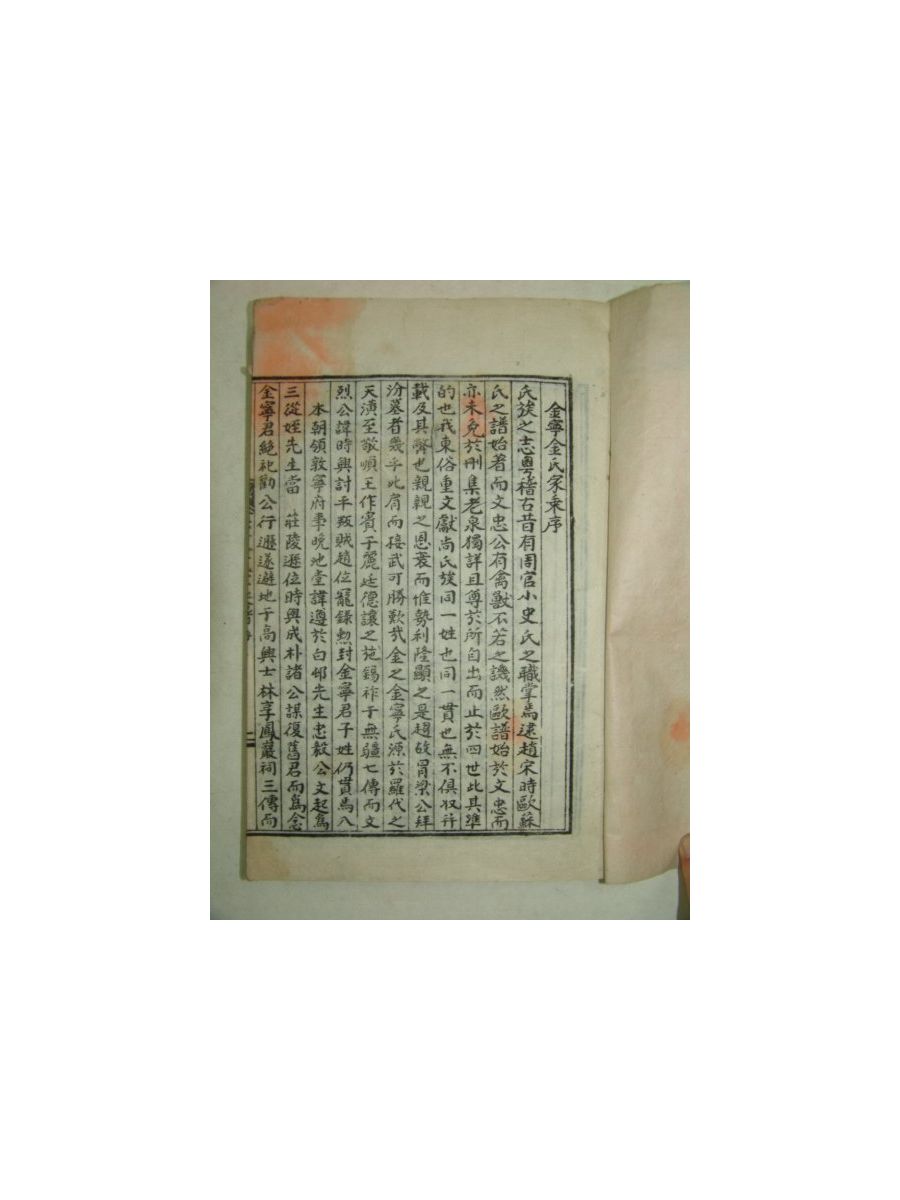 金寧金氏家乘序
氏族之志粤稽古昔有周官小史氏之職掌焉逮趙宋時歐蘇
氏之譜始著而文忠公有禽獸不若之譏然歐譜始於文忠而
亦未免於刪集老泉獨詳且尊於所自出而止於四世此其準
的也我東俗重文獻尚氏族同一姓也同一貫也無不俱収并
載及其弊也親親之恩衰而惟勢利隆顯之是趨故冐梁公拜
汾墓者幾乎比肩而接武可勝歎㢤金之金寧氏源於羅代之
天潢至敬順王作賓于麗廷德讓之施錫祚于無疆七傳而文
烈公諱時興討平叛賊趙位寵錄勲封金寧君子姓仍貫焉八
本朝領敦寧府事晩地堂諱遵於白邨先生忠毅公文起爲
三從姪先生當 莊陵遜位時與成朴諸公謀復舊君而爲念
金寧君絶祀勸公行遯遂避地于高興士林享鳳巖祠三傳而